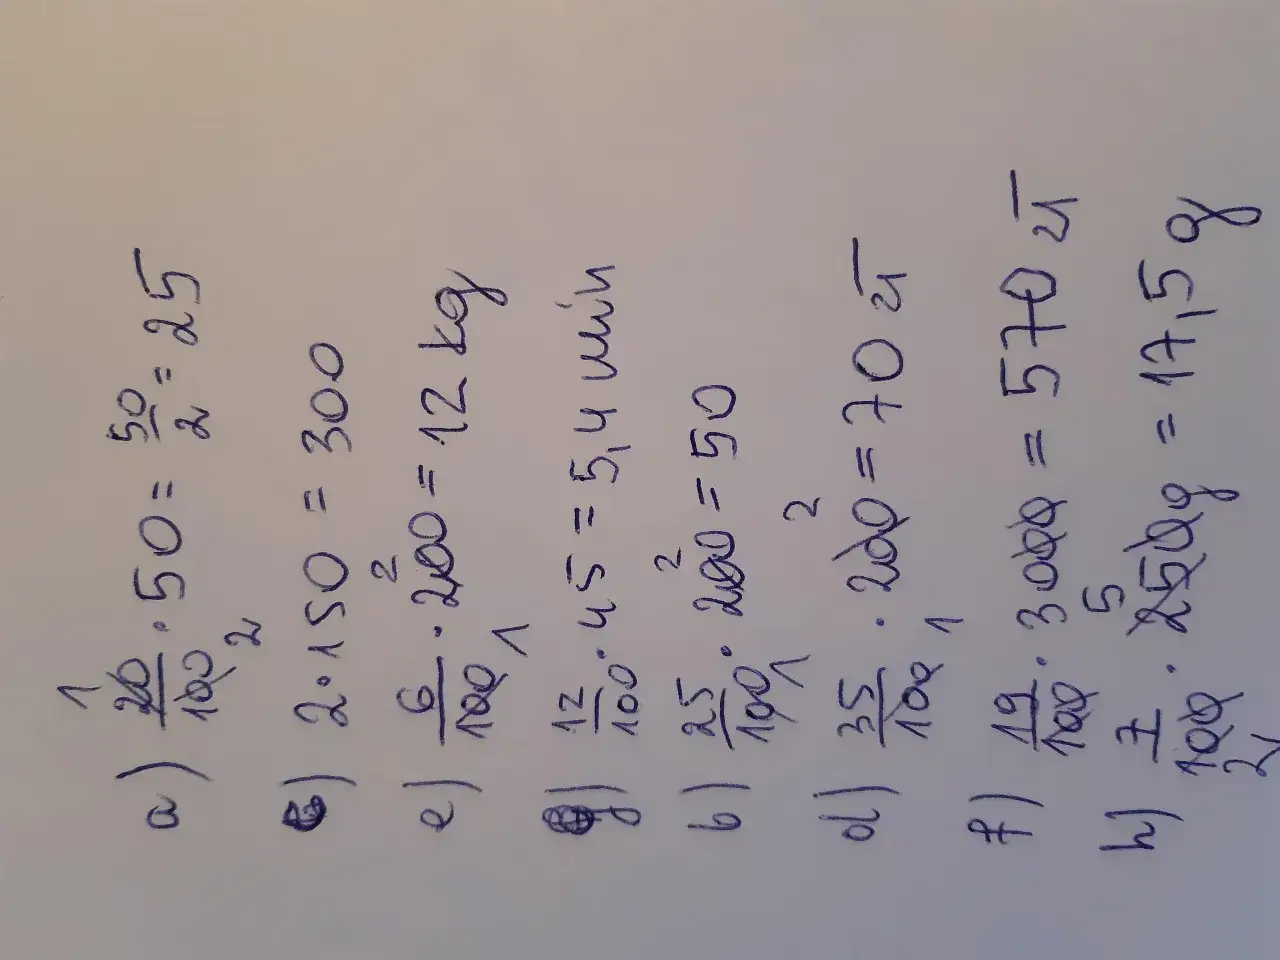 a) 20/100 · 50 = 50/2 = 25
c) 2 · 150 = 300
e) 6/100 · 200 = 12 kg
g) 12/100 · 45 = 5,4 min
b) 25/100 · 200 = 50
d) 35/100 · 200 = 70 zł
f) 19/100 · 3000 = 570 zł
h) 7/100 · 250g = 17,5 g